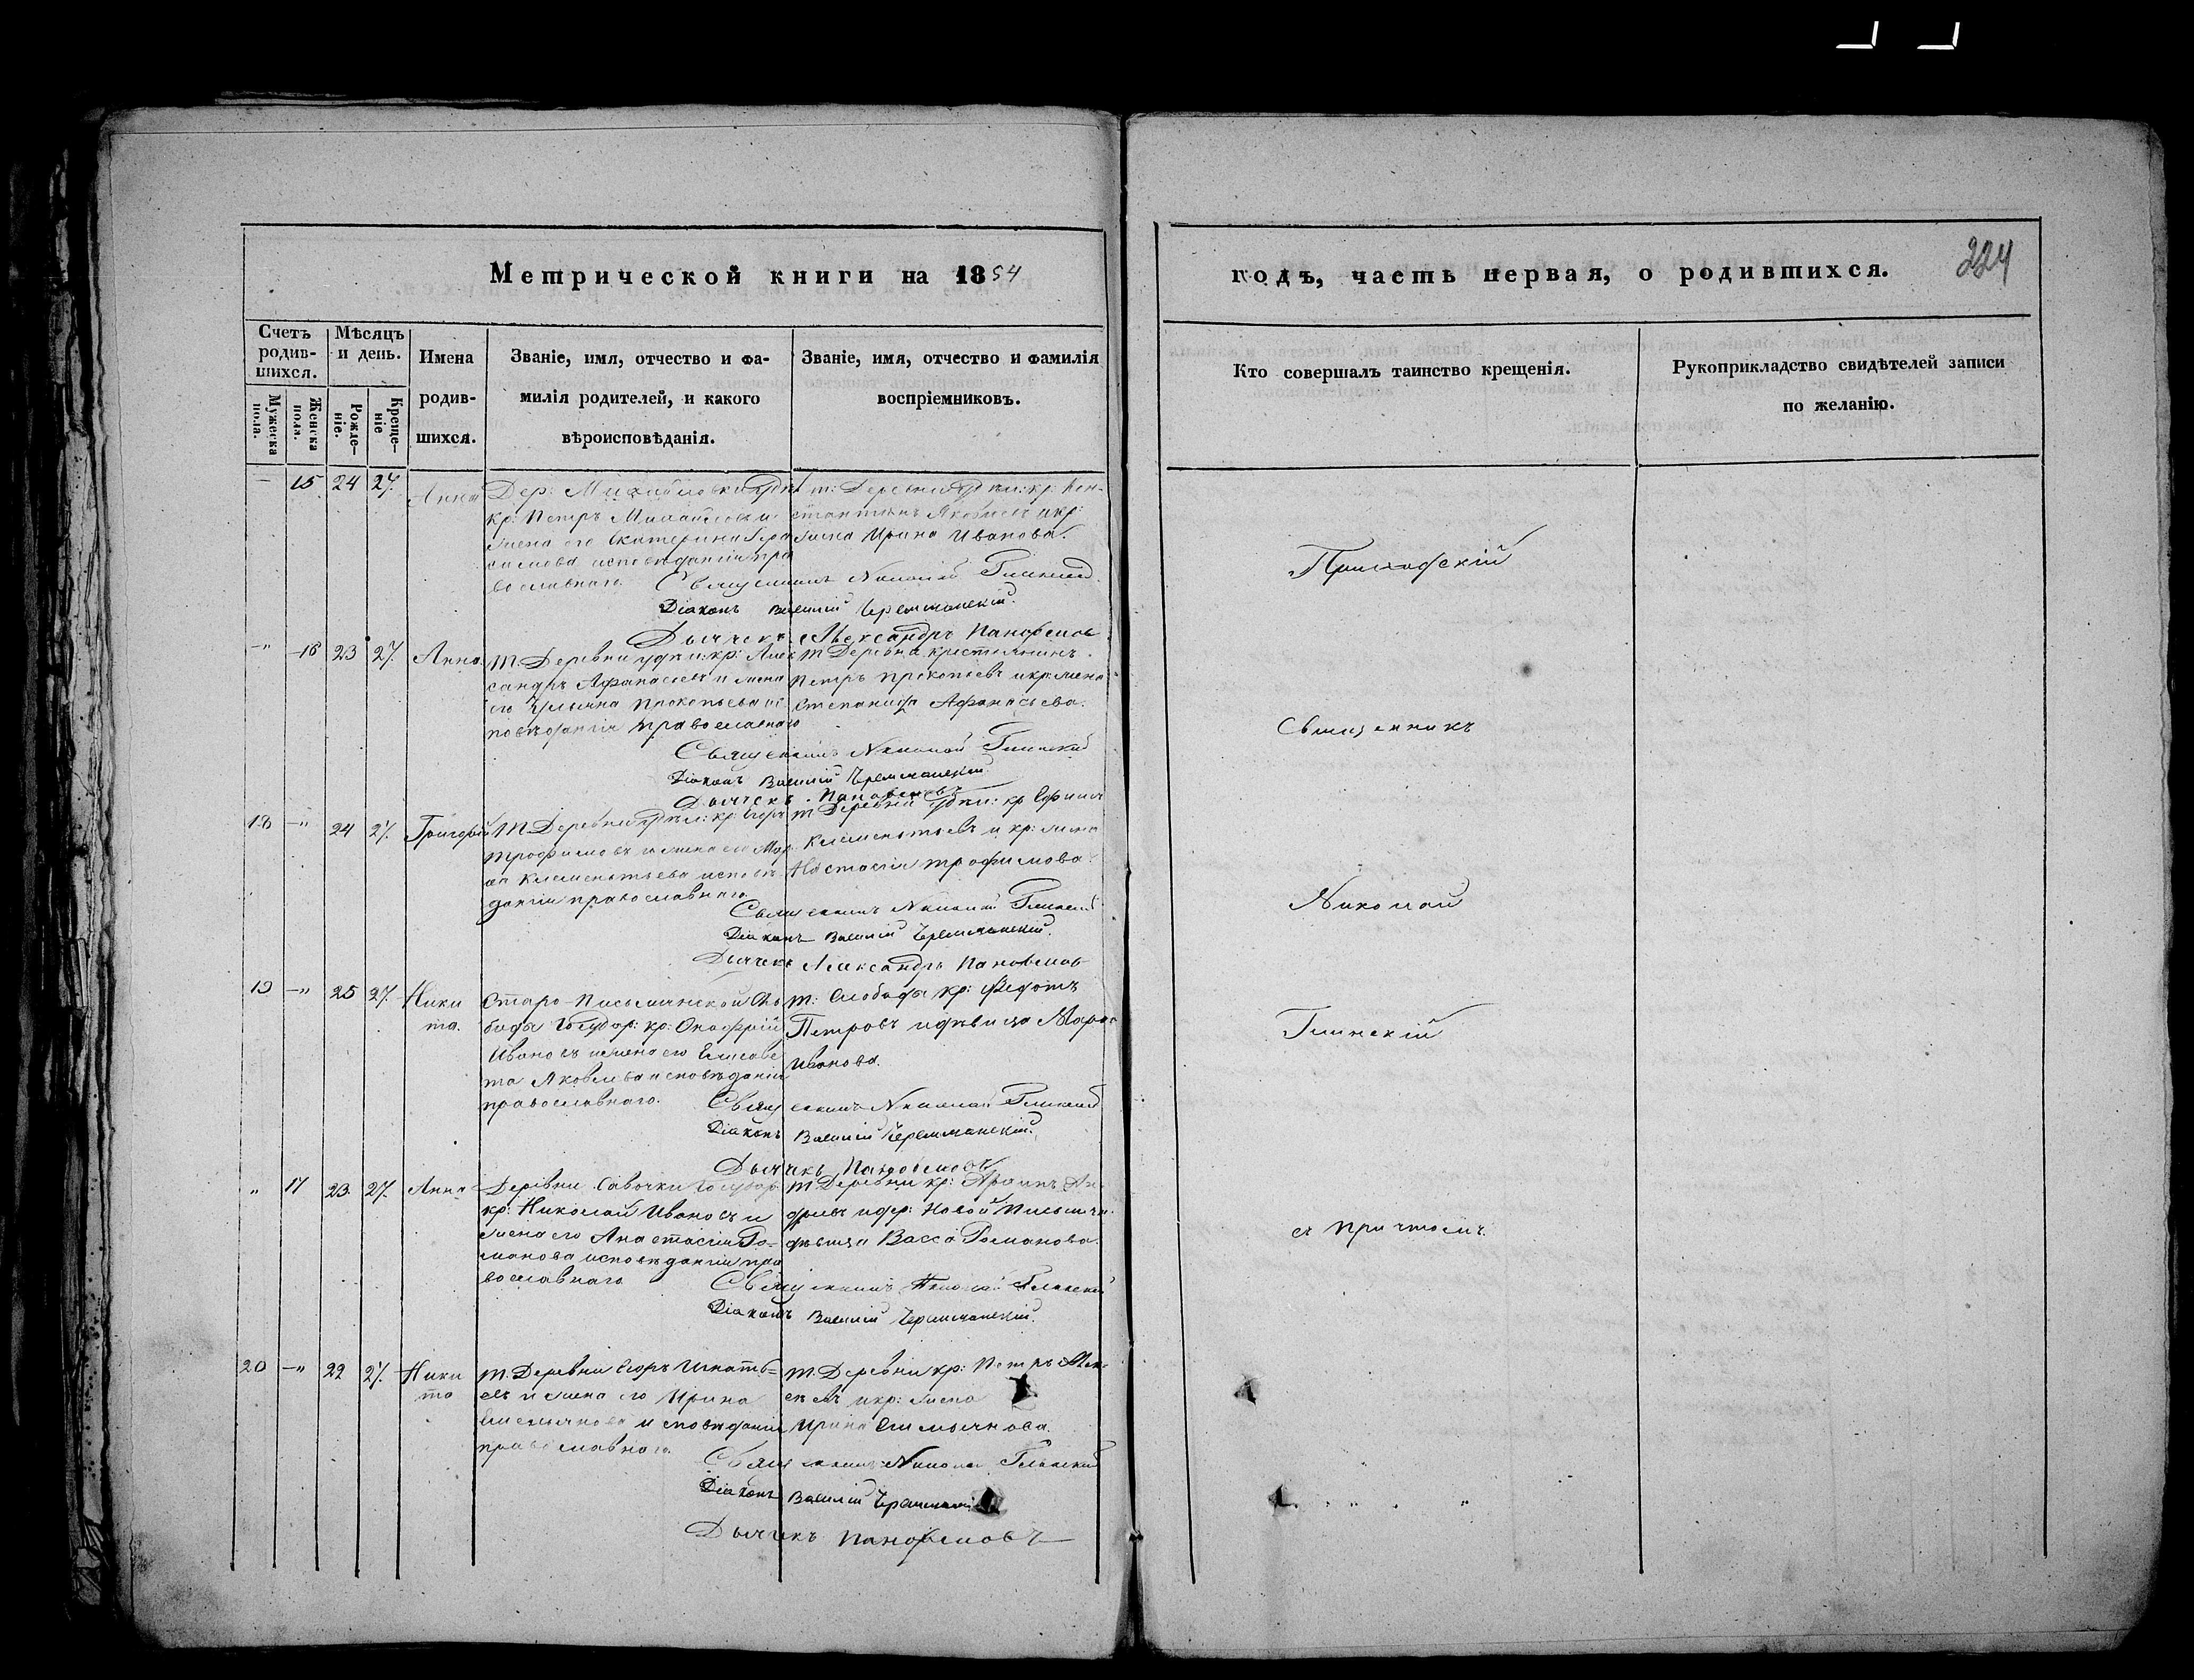 Метрической книги на 1854
годъ, часть первая, о родившихся.
224
Счетъ родив-шихся.
Мѣсяцъ и день.
Имена родив-шихся.
Званіе, имя, отчество и фа-
милія родителей, и какого
вѣроисповѣданія.
Званіе, имя, отчество и фамилія
воспріемниковъ.
Кто совершалъ таинство крещенія.
Рукоприкладство свидѣтелей записи
по желанію.
Мужеска пола.
Женска пола.
Рожде-ніе.
Креще-ніе
— 15 24 27. Анна
Дер: Михайловки
кр: Петръ Михайловъ и
жена его Екатерина Гера
симова исповѣданія пра
вославнаго
т: Деревни кр: Кон-
стантинъ Яковлевъ и кр:
жена Ирина Иванова.
Священникъ Николай Глинскій
Діаконъ Василій Черемшанскій.
Дьячекъ Александръ Панофемовъ
—" 16 23 27. Анна
т. Деревни кр: Алек
сандръ Афанасьевъ и жена
его Прокопьева ис
повѣданія православнаго
т Деревни крестьянинъ
Петръ Прокопьевъ и кр: жена
Степанида Афанасьева.
Священникъ Николай Глинскій
Діаконъ Василій Черемшанскій
Дьячекъ Панофемовъ
18 —" 24 27. Григорій
т. Деревни кр: Егоръ
Трофимовъ и жена его Мар
Клементьева исповѣ
данія православнаго.
т Деревни кр Ефимъ
Клементьевъ и кр: жена
Настасія Трофимова.
Священникъ Николай Глинскій
Діаконъ Василій Черемшанскій.
Дьячекъ Александръ Панофемовъ
19 —" 25 27. Ники
та.
Старо-Письмянской Сло
боды Государ: кр: Онофрій
Ивановъ и жена его Елисаве
та Яковлева исповѣданія
православнаго.
т: Слободы кр: Федотъ
Петровъ и дѣвица
Иванова.
Священникъ Николай Глинскій
Діаконъ Василій Черемшанскій.
Дьячекъ Панофемовъ
" 17 23. 27. Анна
Деревни Савочки Государ
кр: Николай Ивановъ и
жена его Анастасія Ро-
манова исповѣданія пра
вославнаго
т. Деревни кр:
и дер: Новой Письмян
дѣвица Васса Романова.
Священникъ Николай Глинскій
Діаконъ Василій Черемшанскій.
20 —" 22 27. Ники
та
т. Деревни Егоръ Игнать=
евъ и жена его Ирина
исповѣданія
православнаго.
т. Деревни кр: Петръ
евъ и кр: жена
Ирина
Священникъ Николай Глинскій
Діаконъ Василій
Дьячекъ Панофемовъ
Приходскій
Священникъ
Николай
Глинскій
съ причтомъ.